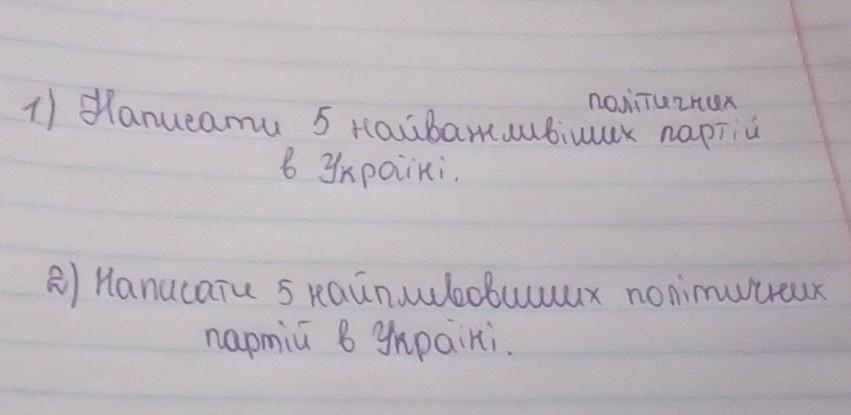 політичних
1) Написати 5 найважливіших партій
в Україні.
2) Написати 5 найпливовіших політичних
партій в Україні.